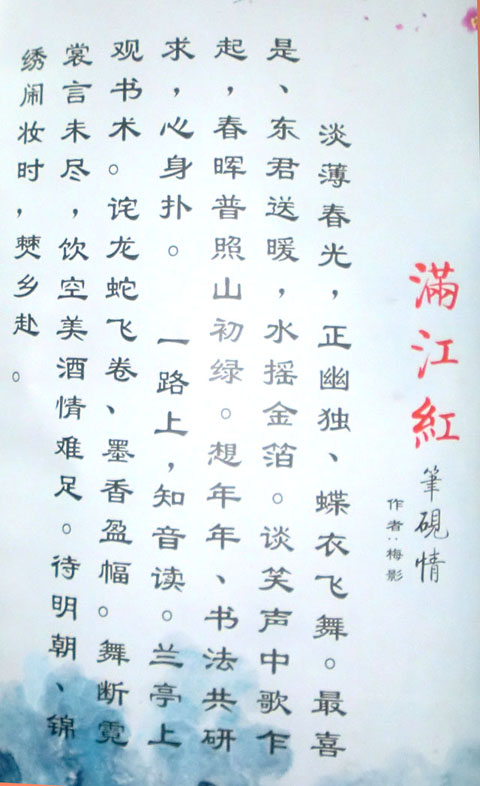 滿江紅
筆硯情
作者：梅影
淡薄春光，正幽独、蝶衣飞舞。最喜
是、东君送暖，水摇金箔。谈笑声中歌乍
起，春晖普照山初绿。想年年、书法共研
求，心身扑。　一路上，知音读。兰亭上
观书术。诧龙蛇飞卷、墨香盈幅。舞断霓
裳言未尽，饮空美酒情难足。待明朝、锦
绣闹妆时，僰乡赴。